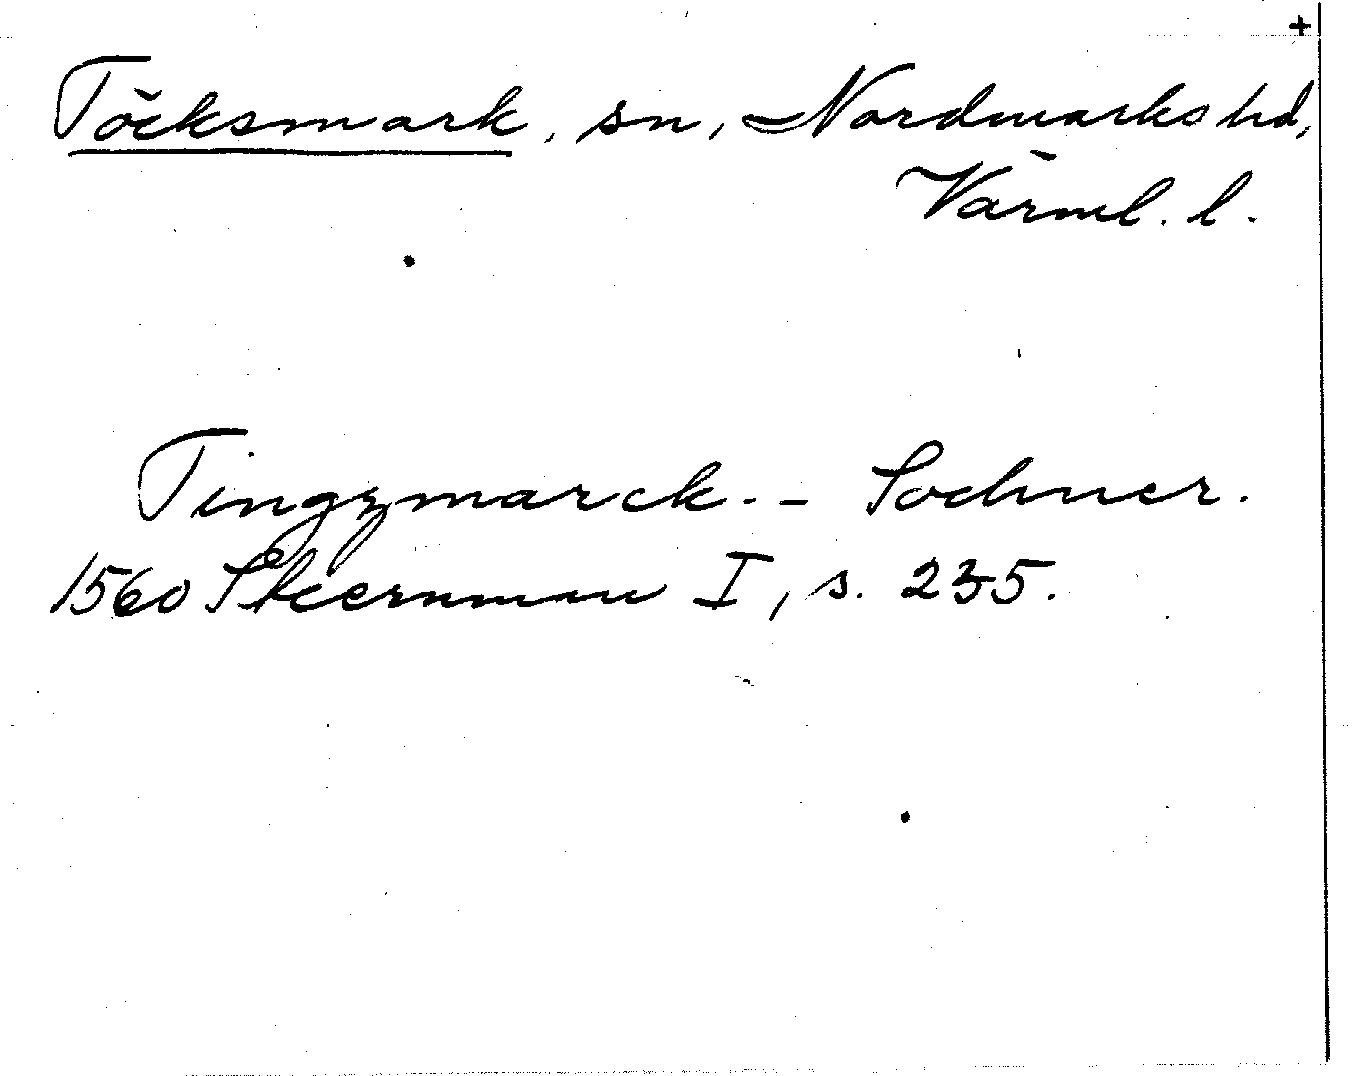 +
Töcksmark, sn, Nordmarks hd,
Värml. l.
Tingzmarck. - Sochner.
1560 Stiernman I, s. 235.